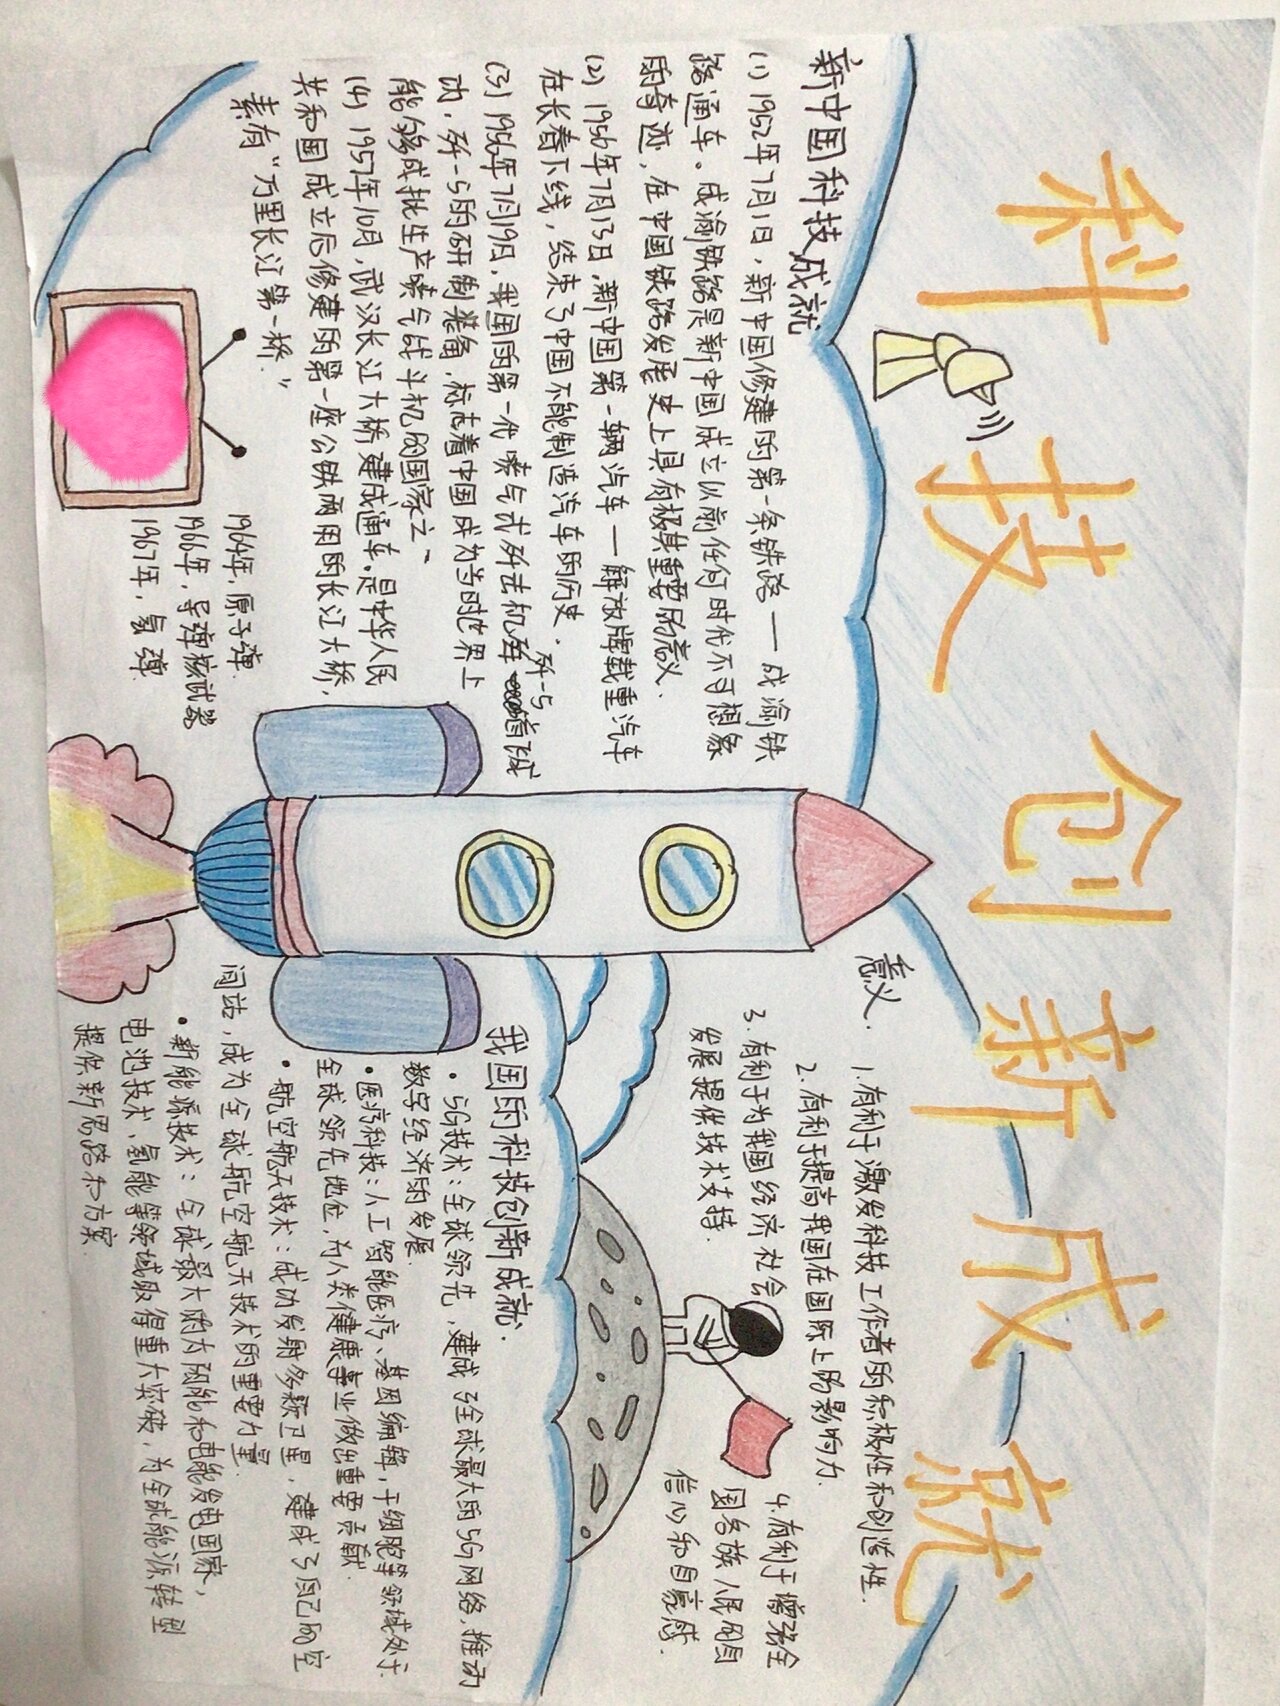 科技创新成就
新中国科技成就
(1) 1952年7月1日，新中国修建的第一条铁路——成渝铁
路通车。成渝铁路是新中国成立以前任何时代不可想象
的奇迹，在中国铁路发展史上具有极其重要的意义.
(2) 1956年7月13日，新中国第一辆汽车—解放牌载重汽车
在长春下线，结束了中国不能制造汽车的历史.
(3) 1956年7月19日，我国的第一代喷气式歼击机歼-5首飞成
功，歼-5的研制装备，标志着中国成为当时世界上
能够成批生产喷气战斗机的国家之一
(4) 1957年10月，武汉长江大桥建成通车.是中华人民
共和国成立后修建的第一座公铁两用的长江大桥，
素有“万里长江第一桥.”
1964年，原子弹
1966年，导弹核武器
1967年，氢弹
意义.
1.有利于激发科技工作者的积极性和创造性.
2.有利于提高我国在国际上的影响力.
3.有利于为我国经济社会
发展提供技术支持.
4.有利于增强全
国各族人民的
信心和自豪感.
我国的科技创新成就.
·5G技术：全球领先，建成了全球最大的5G网络，推动
数字经济的发展.
·医疗科技：人工智能医疗、基因编辑，干细胞等领域处于
全球领先地位，为人类健康事业做出重要贡献.
·航空航天技术：成功发射多颗卫星，建成了自己的空
间站，成为全球航空航天技术的重要力量.
·新能源技术：全球最大的太阳能和电能发电国家，
电池技术、氢能等领域取得重大突破，为全球能源转型
提供新思路和方案.